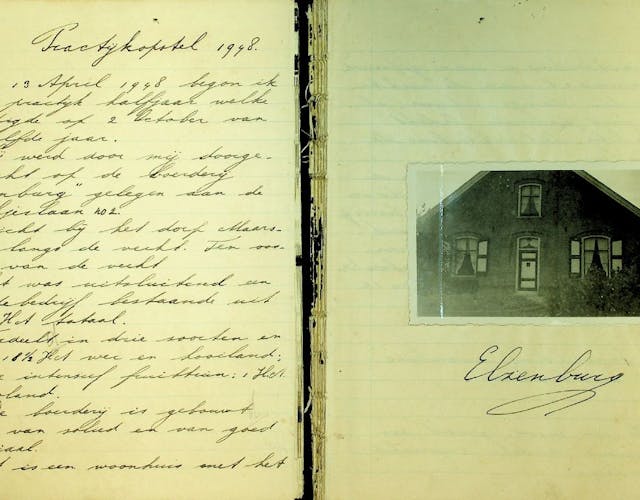 Practijkopstel 1948.
13 April 1948 begon ik
practyk halfjaar welke
igde op 2 October van
elfde jaar.
werd door mij doorge-
cht op de boerderij
nburg" gelegen aan de
No 2.
icht bij het dorp Maars-
langs de vecht. Ten oos-
van de vecht
t was uitsluitend een
debedrijf bestaande uit
Het totaal.
edeelt in drie soorten en
Het wei en hooiland;
intensief fruitteen: 1 Het
wland.
e boerderij is gebouwt
van solied en van goed
iaal.
t is een woonhuis met het
Elzenburg